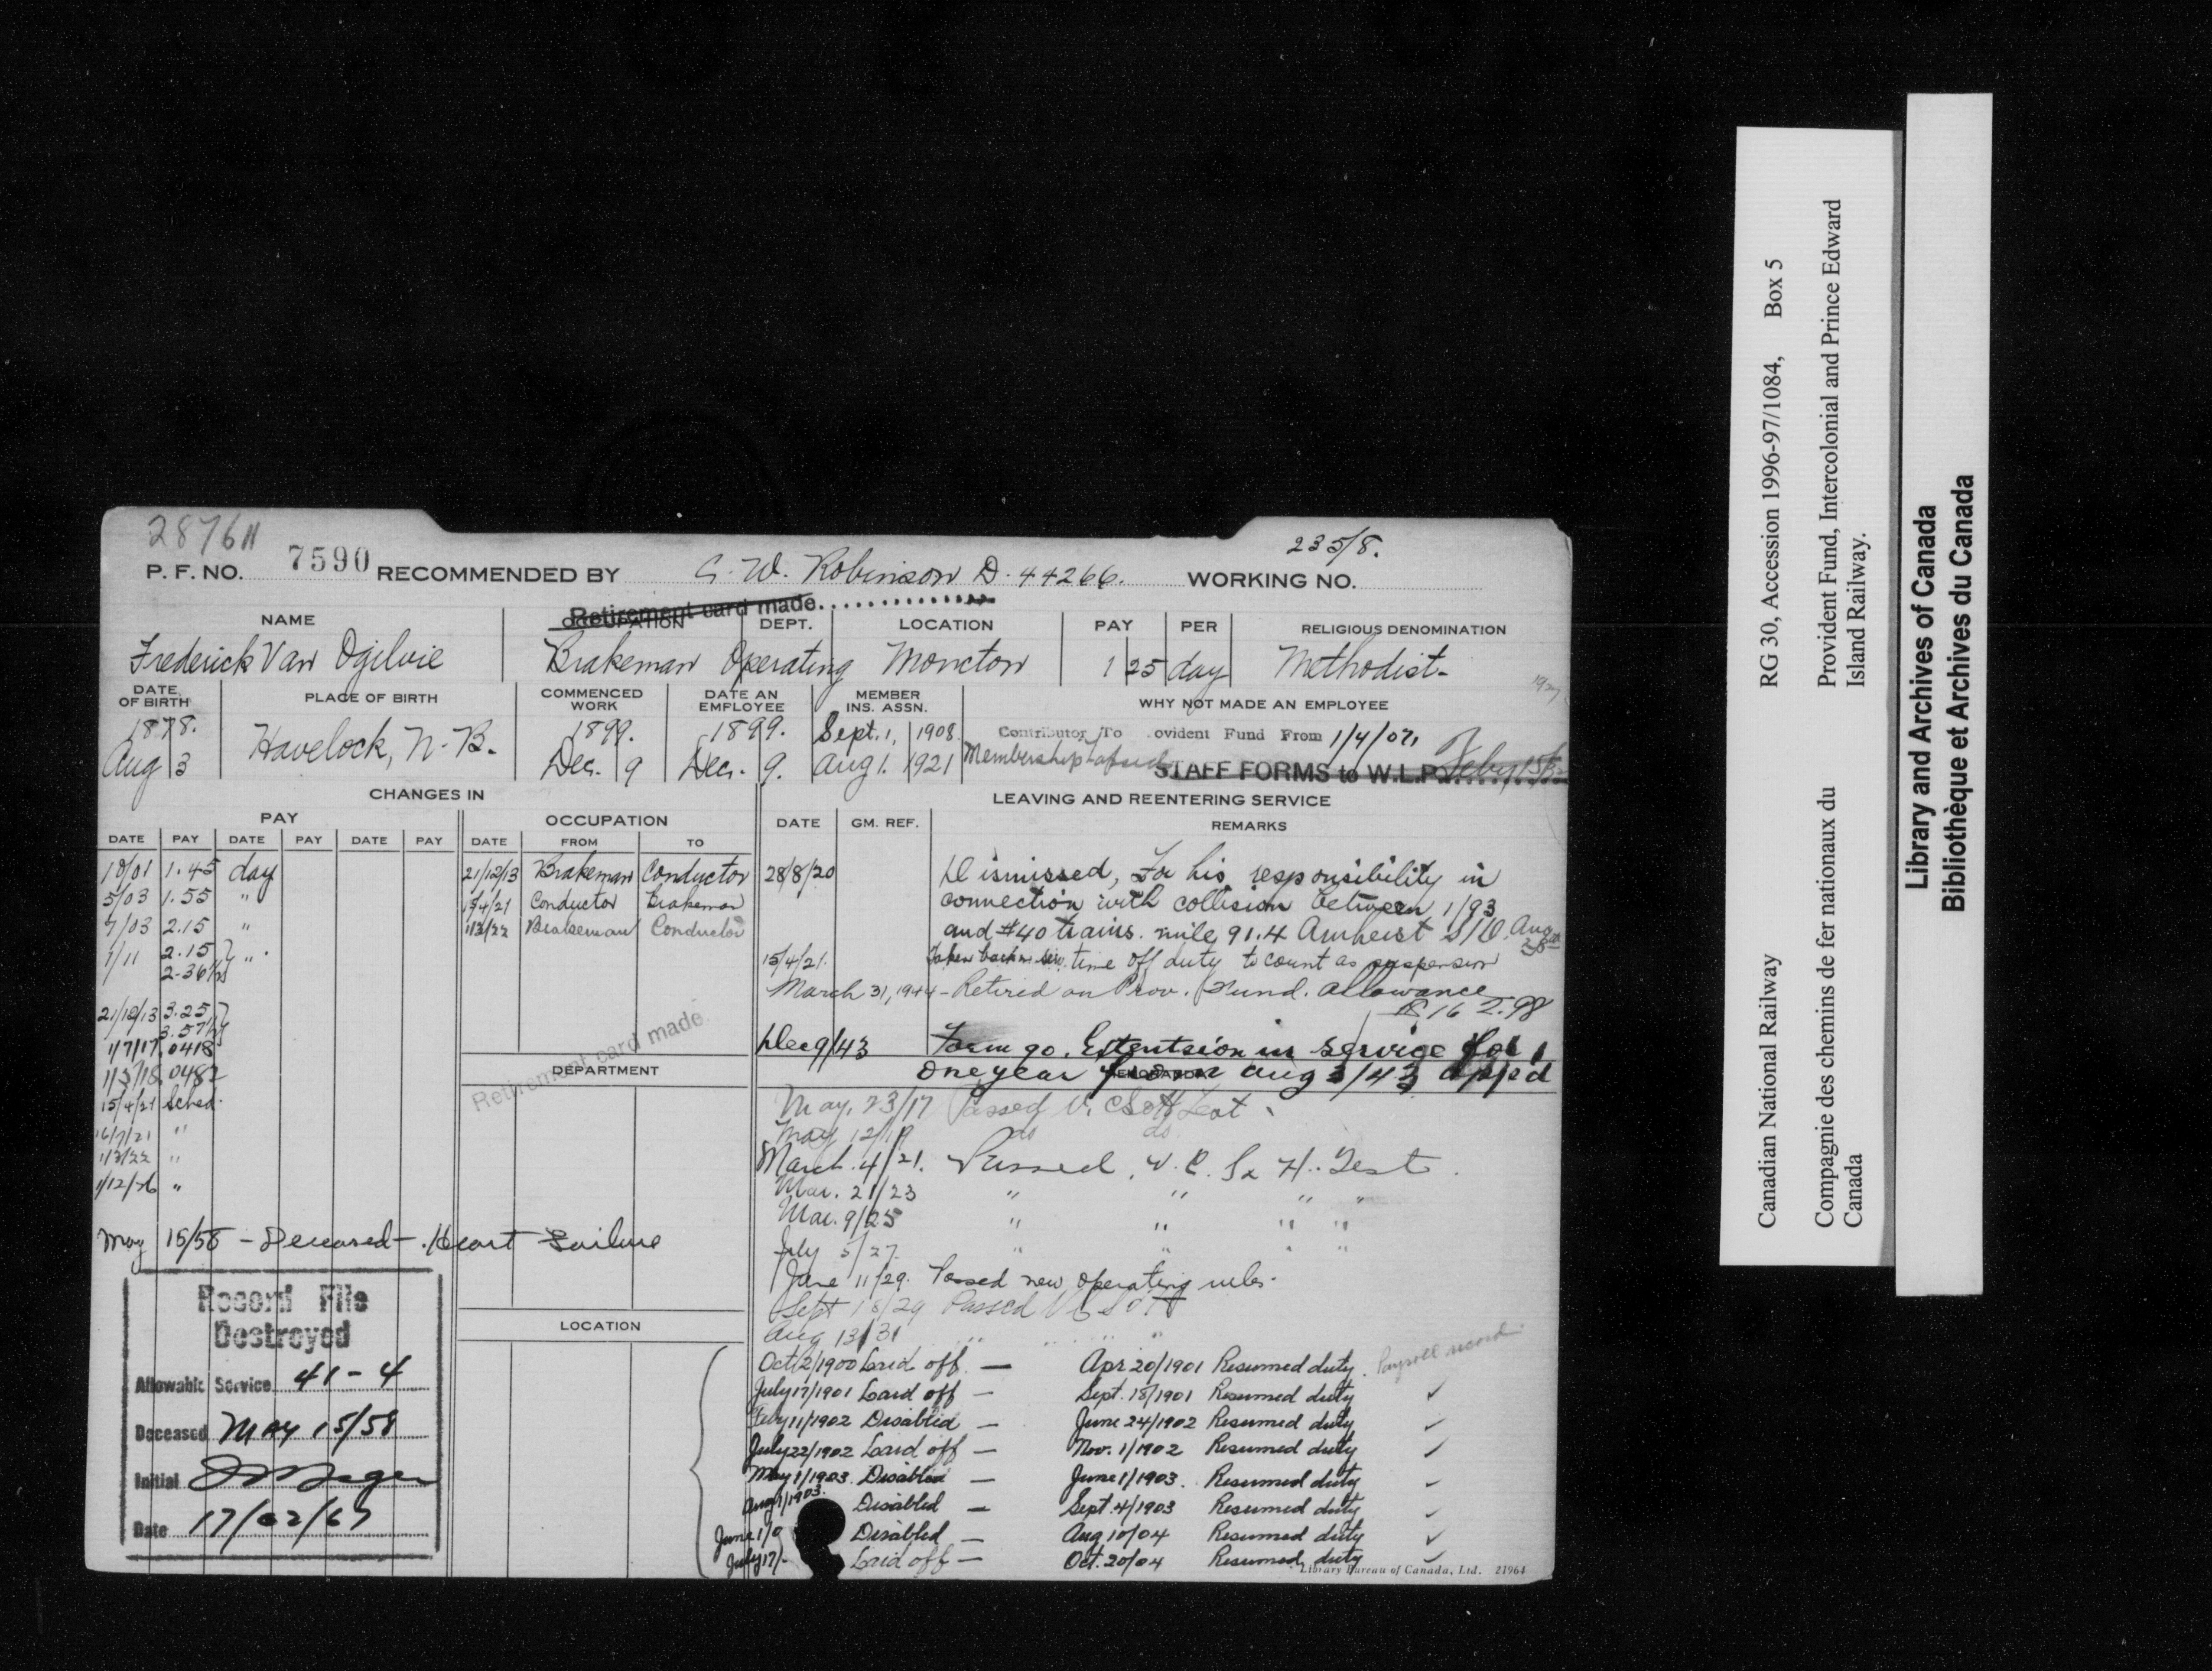 287611
P. F. NO. 7590 RECOMMENDED BY C. W. Robinson D. 44266. WORKING NO. 235/8.
Retirement card made
NAME OCCUPATION DEPT. LOCATION PAY PER RELIGIOUS DENOMINATION
Frederick Van Ogilvie Brakeman Operating Moncton 1 25 day Methodist-
DATE OF BIRTH PLACE OF BIRTH COMMENCED WORK DATE AN EMPLOYEE MEMBER INS. ASSN. WHY NOT MADE AN EMPLOYEE
1878. Havelock, N. B. 1899. 1899. Sept. 1, 1908 Contributor To ovident Fund From 1/4/07,
Aug 3 Dec. 9 Dec. 9. Aug 1. 1921 Membership lapsed STAFF FORMS to W.L.P. Feby 15/32
CHANGES IN LEAVING AND REENTERING SERVICE
PAY OCCUPATION DATE GM. REF. REMARKS
DATE PAY DATE PAY DATE PAY DATE FROM TO
10/01 1.45 day 21/12/13 Brakeman Conductor
5/03 1.55 " 15/4/21 Conductor Brakeman
7/03 2.15 " 1/3/22 Brakeman Conductor
1/11 2.15 " .
2.36½
21/12/13 3.25
3.57½
1/7/17 .0418
1/3/18 .0482
15/4/21 Sched.
16/7/21 "
1/3/22 "
1/12/26 "
28/8/20 Dismissed, For his responsibility in
connection with collision between 1/93
and #40 trains. mile 91.4 Amherst S/D. Aug 28th
15/4/21. Taken back in serv. time off duty to count as suspension
March 31, 1944 - Retired on Prov. Fund. Allowance
Dec 9/43 Form 90. Extension in service for
one year from Aug 3/43 app'd
Retirement card made
DEPARTMENT
MEMORANDA
May, 23/17 Passed V. C S & H Test
May 12/19 do do
March. 4/21. Passed. V. C. S & H. Test.
Mar. 21/23 " " " "
Mar. 9/25 " " " "
July 5/27. " " " "
June 11/29. Passed new operating rules.
Sept 18/29 Passed
Aug 13/31 " " " "
May 15/58 - Deceased - Heart Failure
Record File
Destroyed
Allowable Service 41-4
Deceased May 15/58
Initial
Date 17/02/67
LOCATION
Oct 2/1900 Laid off. — Apr 20/1901 Resumed duty. Payroll record
July 17/1901 Laid off — Sept. 18/1901 Resumed duty ✓
Feby 11/1902 Disabled — June 24/1902 Resumed duty ✓
July 22/1902 Laid off — Nov. 1/1902 Resumed duty ✓
May 1/1903. Disabled — June 1/1903. Resumed duty ✓
Aug 1/1903. Disabled — Sept. 4/1903 Resumed duty ✓
June 1/0 Disabled — Aug 10/04 Resumed duty ✓
July 17/- Laid off — Oct. 20/04 Resumed duty ✓
Library Bureau of Canada, Ltd. 21964
Canadian National Railway RG 30, Accession 1996-97/1084, Box 5
Compagnie des chemins de fer nationaux du Provident Fund, Intercolonial and Prince Edward
Canada Island Railway.
Library and Archives of Canada
Bibliothèque et Archives du Canada